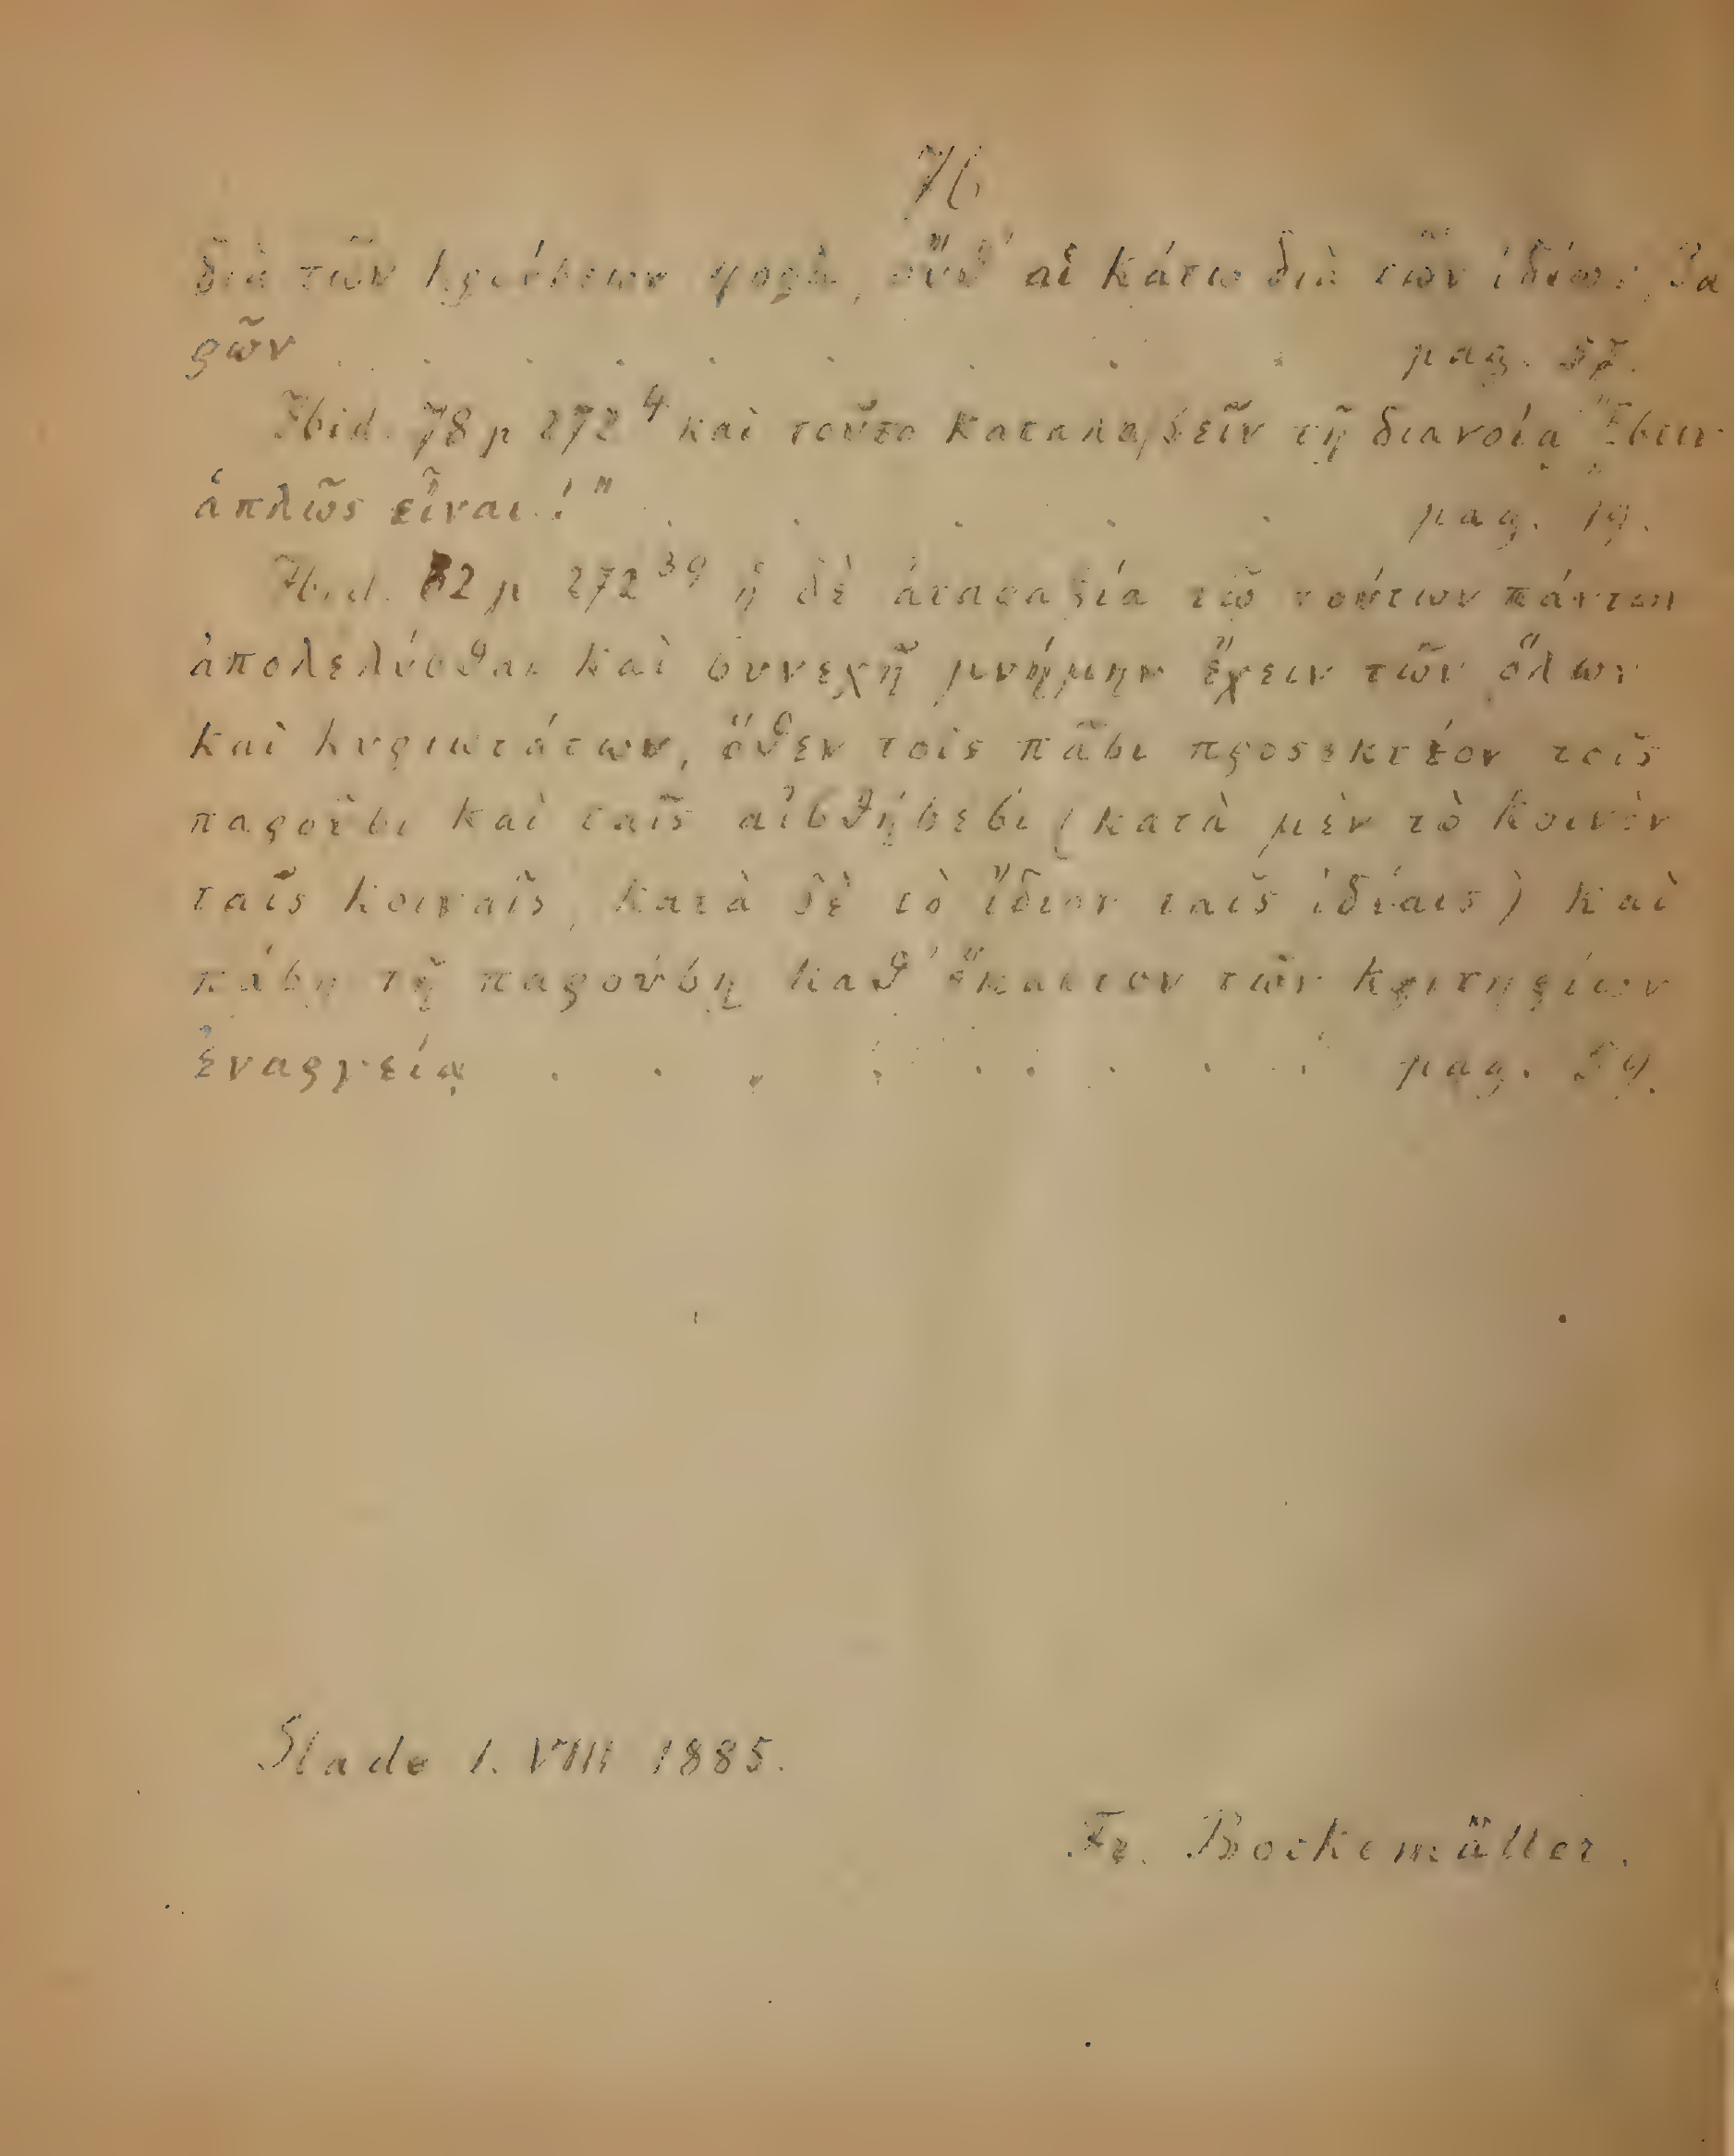 76
διὰ τῶν κρούσεων φορὰ, οὔθ' αἱ κάτω διὰ τῶν ἰδίων βα
ρῶν . . . . . . . . pag.
Ibid. 78 p 272⁴ καὶ τοῦτο καταλαβεῖν τῇ διανοίᾳ "ἔστιν
ἁπλῶς εἶναι!" . . . . . pag. 19.
Ibid. 82 p 272³⁹ ἡ δὲ ἀταραξία τῷ τούτων πάντων
ἀπολελύσθαι καὶ συνεχῆ μνήμην ἔχειν τῶν ὅλων
καὶ κυριωτάτων, ὅθεν τοῖς πᾶσι προσεκτέον τοῖς
παροῦσι καὶ ταῖς αἰσθήσεσι (κατὰ μὲν τὸ κοινὸν
ταῖς κοιναῖς, κατὰ δὲ τὸ ἴδιον ταῖς ἰδίαις) καὶ
πάσῃ τῇ παρούσῃ καθ' ἕκαστον τῶν κριτηρίων
ἐναργείᾳ . . . . . . . . . pag. 59.
Stade 1. VIII 1885.
Fr. Bockemüller.